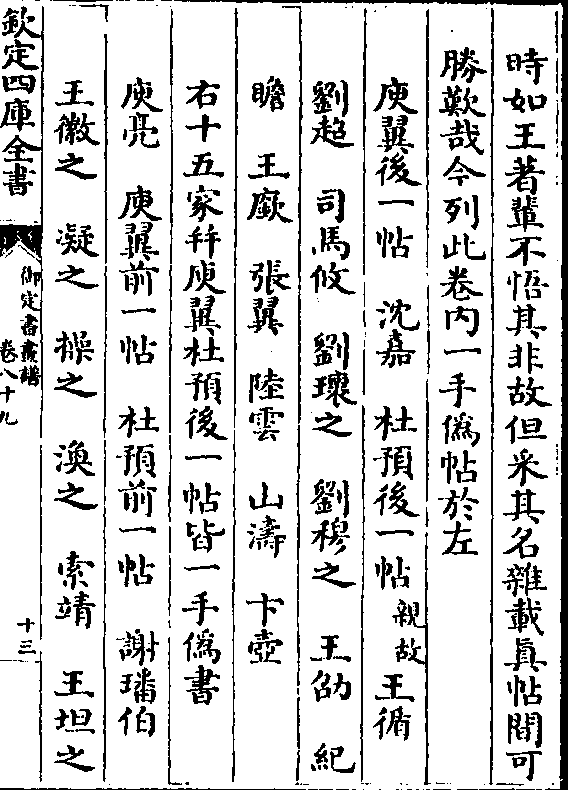 時如王著輩不悟其非故但采其名雜載真帖間可
勝歎哉今列此卷内一手偽帖於左
庾翼後一帖 沈嘉 杜預後一帖親故 王循
劉超 司馬攸 劉瓌之 劉穆之 王劭 紀
瞻 王廞 張翼 陸雲 山濤 卞壺
右十五家并庾翼杜預後一帖皆一手偽書
庾亮 庾翼前一帖 杜預前一帖 謝璠伯
王徽之 凝之 操之 渙之 索靖 王坦之
欽定四庫全書
御定書畫譜
卷八十九
十三